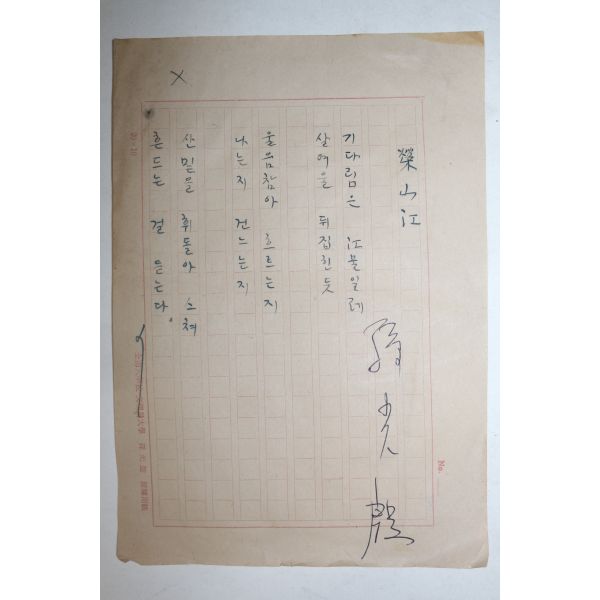 榮山江
기다림은 江물일레
살여울 뒤집힌 듯
울음참아 흐르는지
나는지 건느는지
산밑을 휘돌아 스쳐
흔드는 걸 듣는다.
孫光殷
X
No.
20×10